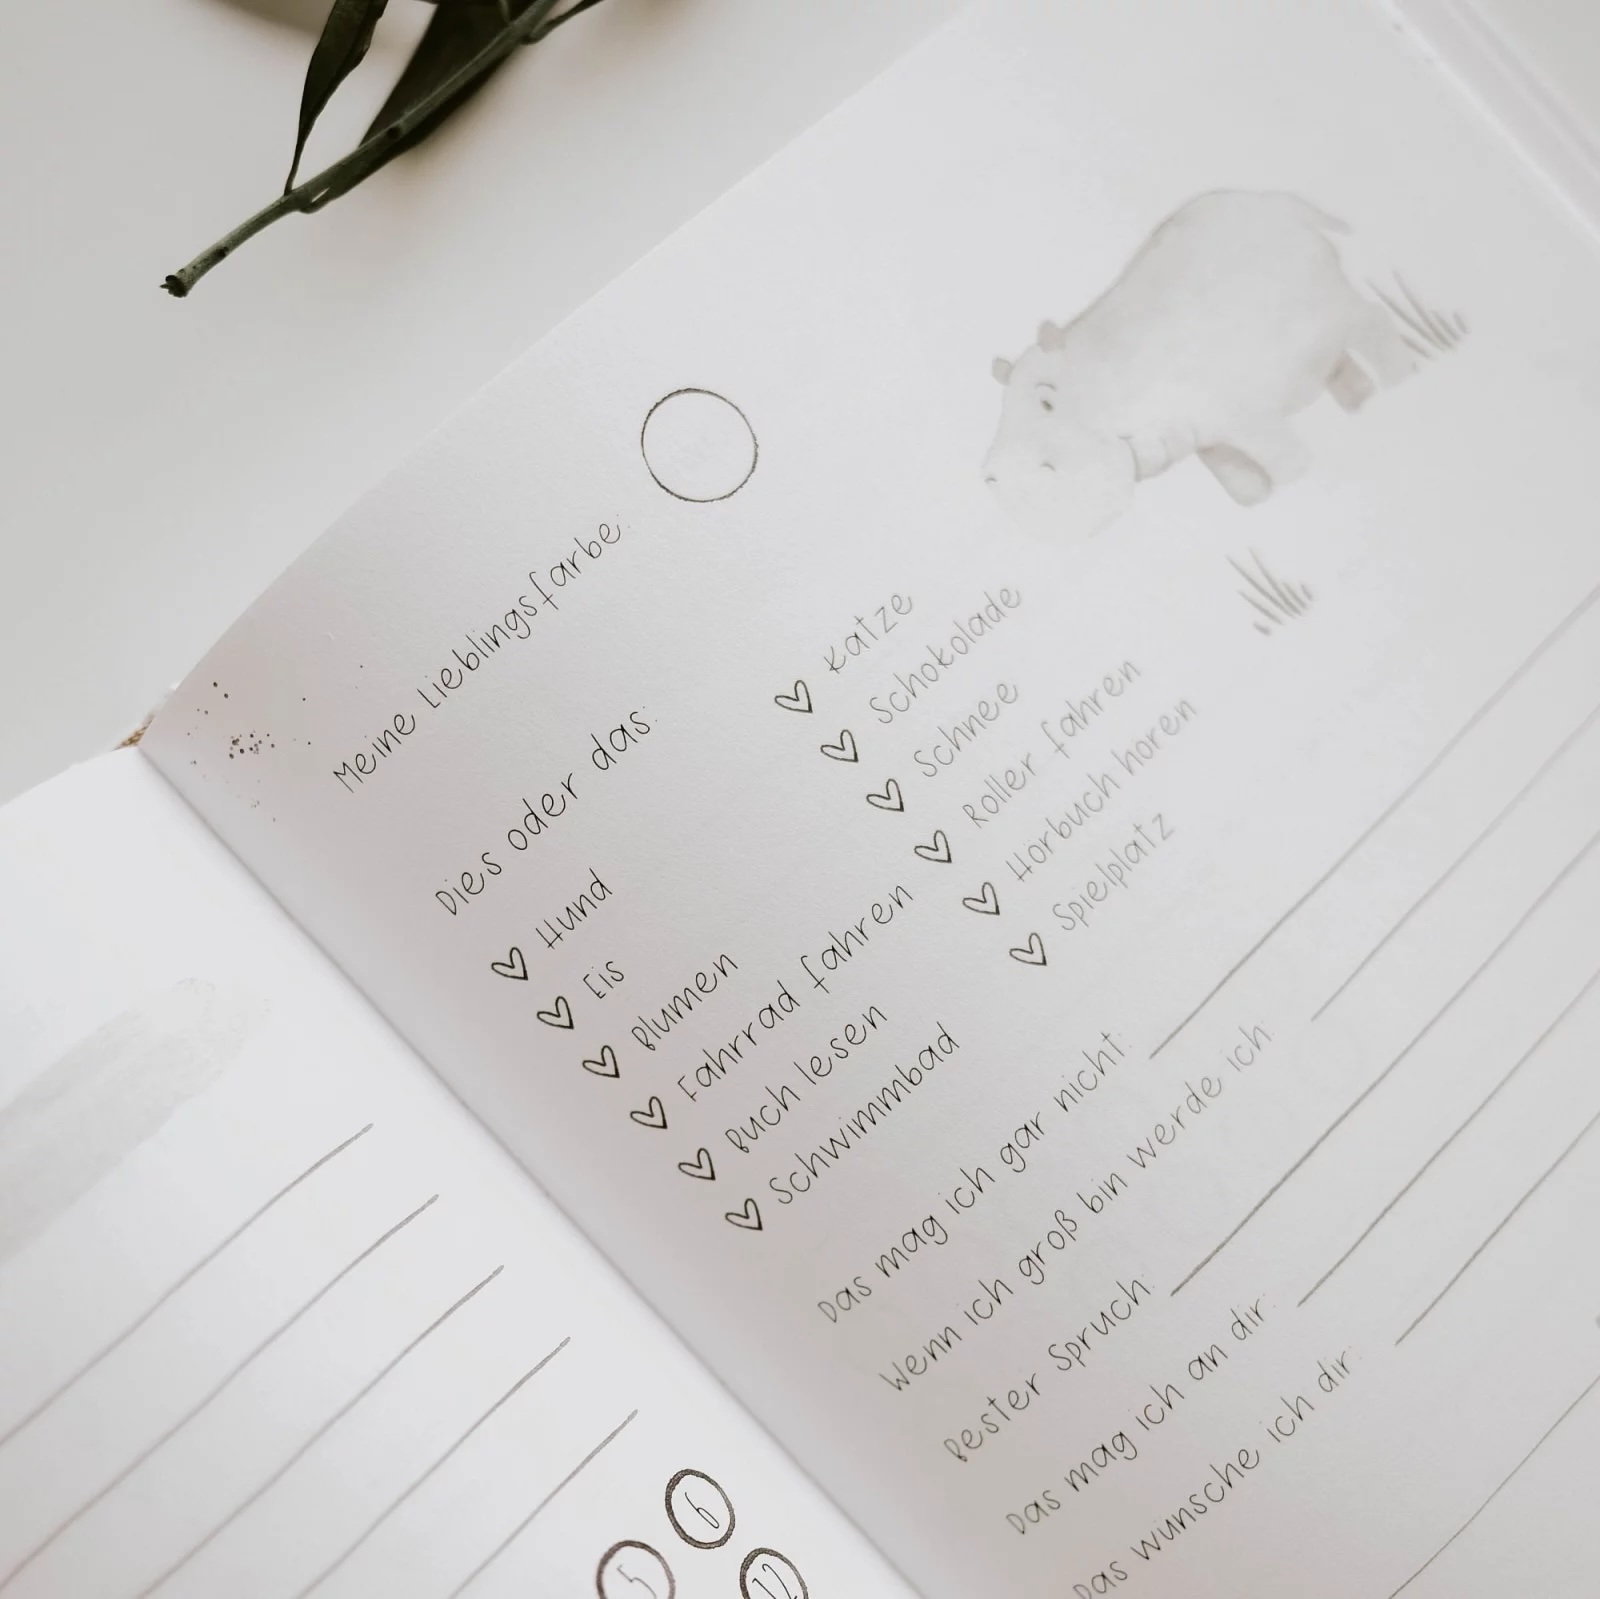 Meine Lieblingsfarbe:
Dies oder das:
Hund Katze
Eis Schokolade
Blumen Schnee
Fahrrad fahren Roller fahren
Buch lesen Hörbuch hören
Schwimmbad Spielplatz
Das mag ich gar nicht:
Wenn ich groß bin werde ich:
Bester Spruch:
Das mag ich an dir:
Das wünsche ich dir:
6
5 12